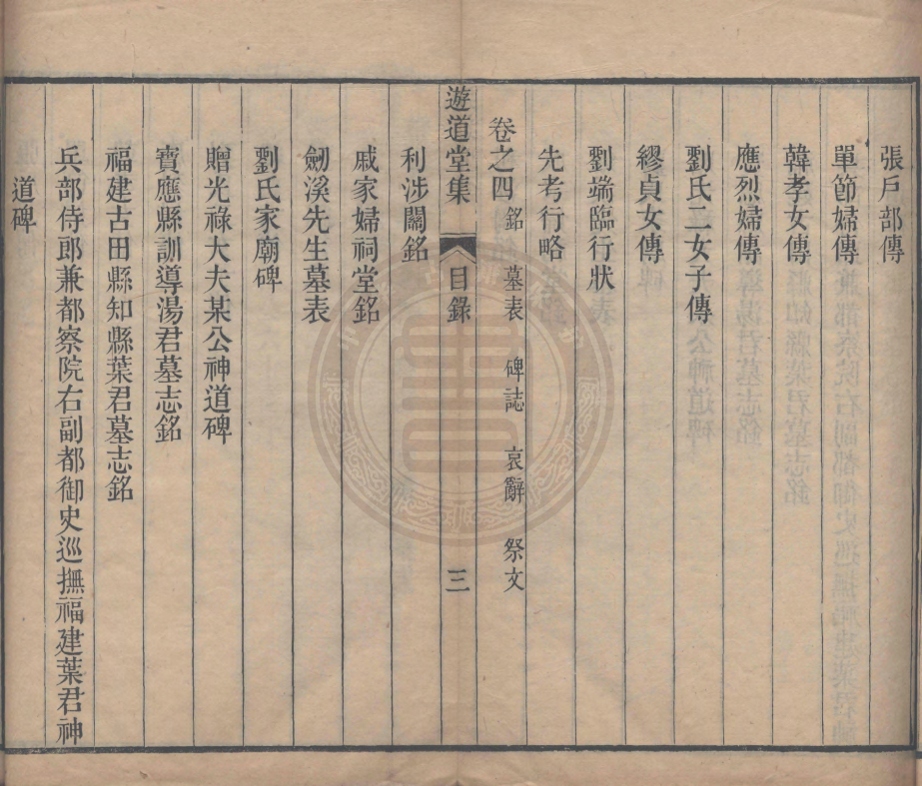 張戶部傳
單節婦傳
韓孝女傳
應烈婦傳
劉氏二女子傳
繆貞女傳
劉端臨行狀
先考行略
卷之四 銘 墓表 碑誌 哀辭 祭文
遊道堂集 目錄 三
利涉閘銘
戚家婦祠堂銘
劒溪先生墓表
劉氏家廟碑
贈光祿大夫某公神道碑
寶應縣訓導湯君墓志銘
福建古田縣知縣葉君墓志銘
兵部侍郎兼都察院右副都御史巡撫福建葉君神
道碑